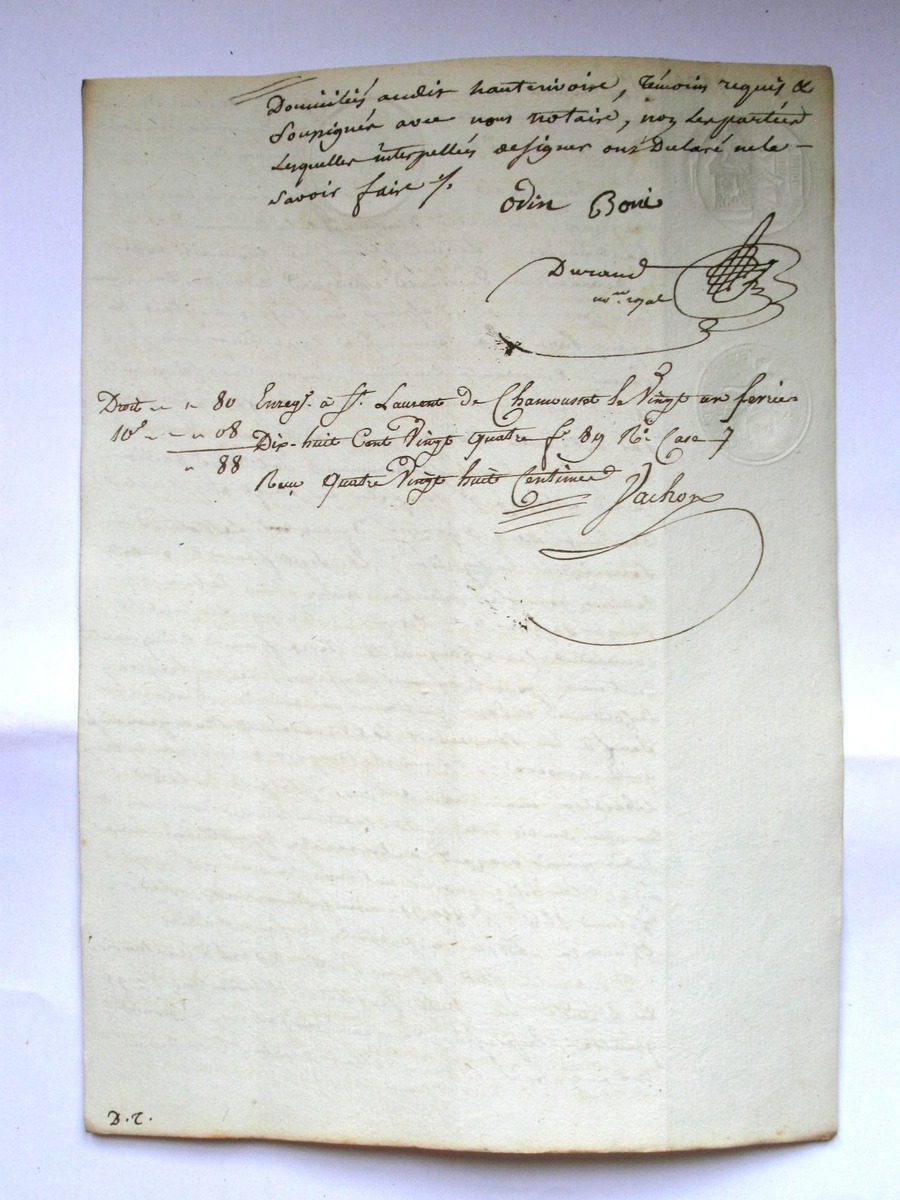 Domiciliés audit hauterivoire, témoins requis &
Soussignés avec nous notaire, non les parties
Lesquelles interpellées de signer ont Déclaré ne le
savoir faire ./.
Odin Boni
Durand
no.re royal
Droit " " 80 Enreg.t à St. Laurent de Chamousset le Vingt un fevrier
10e " " 08 Dix-huit Cent Vingt quatre f.o 89 R.o Case 7
" 88 Reçu quatre Vingt huit Centimes Vachon
D. T.